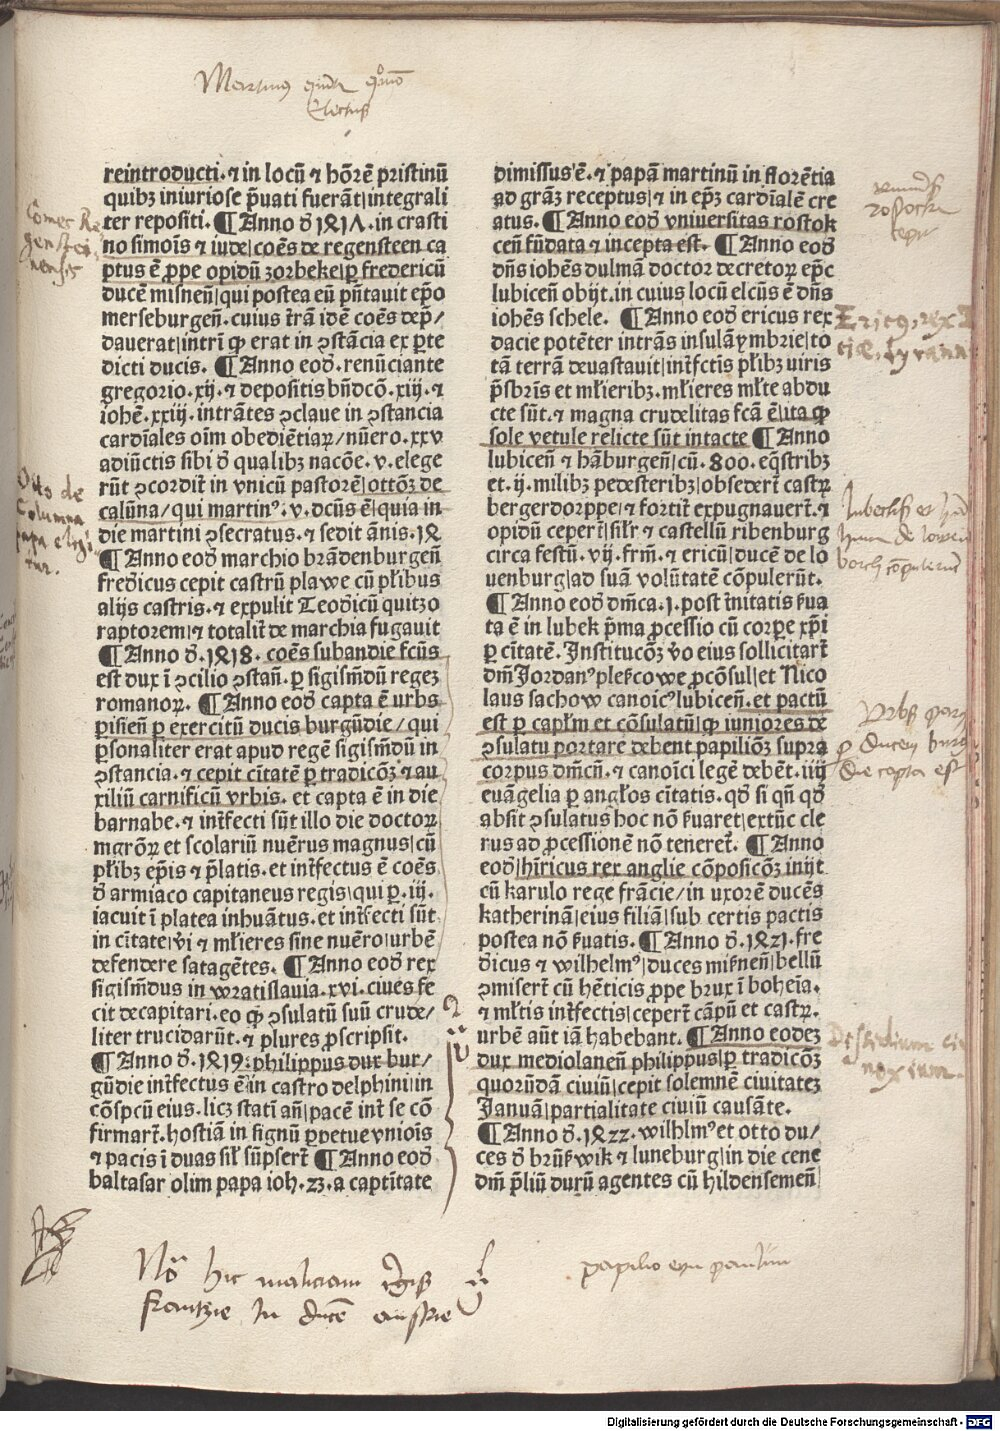 Martinus quintus
Electus
reintroducti.⁊ in locū ⁊ hõrē pristinū
quibꝫ iniuriose p̄uati fuerāt|integrali
ter repositi. ¶ Anno ð 1417. in crasti
no simoīs ⁊ iude|coēs de regensteen ca
ptus ē ꝓpe opidū zorbeke|ꝑ fredericū
ducē misneñ|qui postea eū pñtauit epō
merseburgeñ. cuius trā idē coēs dep̄/
dauerat|intrī ꝙ erat in ꝯstācia ex ꝑte
dicti ducis. ¶ Anno eoð. renūciante
gregorio.xij.⁊ depositis bñdcō.xiij.⁊
iohē.xxiij. intrātes ꝯclaue in ꝯstancia
cardīales oīm obediētiaꝝ/nūero.xxv
adiūctis sibi ð qualibꝫ nacōe.v.elege
rūt ꝯcordit̄ in vnicū pastorē|ottōꝫ de
calūna/qui martinꝰ.v.dcūs ē|quia in
die martini ꝯsecratus.⁊ sedit ānis.14
¶ Anno eoð marchio brādenburgeñ
fredicus cepit castrū plawe cū pl̄ibus
alijs castris.⁊ expulit Teoðicū quitzo
raptorem|⁊ totalit̄ de marchia fugauit
¶ Anno ð.1418. coēs subandie fcūs
est dux ī ꝯcilio ꝯstañ.ꝑ sigism̄dū regeꝫ
romanoꝝ. ¶ Anno eoð capta ē urbs
pisieñ ꝑ exercitū ducis burgūdie/qui
ꝑsonaliter erat apud regē sigism̄dū in
ꝯstancia.⁊ cepit cītatē ꝑ tradicōꝫ ⁊ au
xiliū carnificū vrbis. et capta ē in die
barnabe.⁊ int̄fecti sūt illo die doctoꝝ
mgrōꝝ et scolariū nuērus magnus|cū
pl̄ibꝫ ep̄is ⁊ p̄latis.et int̄fectus ē coēs
ð armiaco capitaneus regis|qui ꝑ.iij.
iacuit ī platea inhuātus.et int̄fecti sūt
in cītate|v̄i ⁊ ml̄ieres sine nuēro|urbē
defendere satagētes. ¶ Anno eoð rex
sigism̄dus in wratislauia.xvi.ciues fe
cit decapitari.eo ꝙ ꝯsulatū suū crude/
liter trucidarūt.⁊ plures ꝓscripsit.
¶ Anno ð.1419: philippus dux bur/
gūdie int̄fectus ē|in castro delphini|in
cōspcū eius.licꝫ statī añ|pacē int̄ se cō
firmart̄.hostiā in signū ꝑpetue vnioīs
⁊ pacis ī duas sil̄ sūpsert̄ ¶ Anno eoð
baltasar olim papa ioh.23.a captītate
dimissus ē.⁊ ī papā martinū in florētia
ad grāꝫ receptus|⁊ in ep̄ꝫ cardīalē cre
atus. ¶ Anno eoð vniuersitas rostok
ceñ fūdata ⁊ incepta est. ¶ Anno eoð
dñs iohēs dulmā doctor decretoꝝ ep̄c
lubiceñ obijt.in cuius locū elcūs ē dñs
iohēs schele. ¶ Anno eoð ericus rex
dacie potēter intrās insulāymbrie|to
tā terrā deuastauit|int̄fctīs pl̄ibꝫ uiris
p̄sbrīs et ml̄ieribꝫ.ml̄ieres ml̄te abdu
cte sūt.⁊ magna crudelitas fcā ē|ita ꝙ
sole vetule relicte sūt intacte ¶ Anno
lubiceñ ⁊ hāburgeñ|cū.800.eq̄stribꝫ
et.ij.milibꝫ pedesteribꝫ|obsedert̄ castꝝ
bergerdorppe|⁊ fortit̄ expugnauert̄.⁊
opidū cepert̄|sil̄r ⁊ castellū ribenburg
circa festū.vij.frm̄.⁊ ericū|ducē de lo
uenburg|ad suā volūtatē cōpulerūt.
¶ Anno eoð dm̄ca.j.post t̄nitatis ẜua
ta ē in lubek p̄ma ꝓcessio cū corꝑe xp̄i
ꝑ cītatē. Institucōꝫ v̄o eius sollicitart̄
dm̄ Jordanꝰ plescowe ꝓcōsul|et Nico
laus sachow canoicꝰ lubiceñ.et pactū
est ꝑ capl̄m et cōsulatū|ꝙ iuniores de
ꝯsulatu portare debent papiliōꝫ supra
corpus dm̄cū.⁊ canoīci legē debēt.iiij
euāgelia ꝑ angl̄os cītatis.qð si qñ qð
absit ꝯsulatus hoc nō ẜuaret|extūc cle
rus ad ꝓcessionē nō teneret̄. ¶ Anno
eoð|hīricus rex anglie cōposicōꝫ inijt
cū karulo rege frācie/in uxorē ducēs
katherinā|eius filiā|sub certis pactis
postea nō ẜuatis. ¶ Anno ð.1421.fre
ðicus ⁊ wilhelmꝰ|duces misneñ|bellū
ꝯmisert̄ cū hēticis ꝓpe brux ī boheīa.
⁊ ml̄tis int̄fectis|cepert̄ cāpū et castꝝ.
urbē aūt iā habebant. ¶ Anno eodeꝫ
dux mediolaneñ philippus|ꝑ tradicōꝫ
quorūdā ciuiū|cepit solemnē ciuitateꝫ
Januā|partialitate ciuiū causāte.
¶ Anno ð.1422. wilhl̄mꝰ et otto du/
ces ð brūẜwik ⁊ luneburg|in die cene
dm̄ p̄liū durū agentes cū hildensemeñ
Comes Re
genstei
nensis
Otto de
Columna
papa eligi
tur.
Ericꝰ rex
ciæ, tyrann
Lubecēses et
borch cōpulerunt
Vrbs paris
ꝑ ducem burg
die capta est
Dissidium ci
Nō hic maliciam regis
frantzie in ducē austrie
papilio eyn pawlun
Digitalisierung gefördert durch die Deutsche Forschungsgemeinschaft - DFG